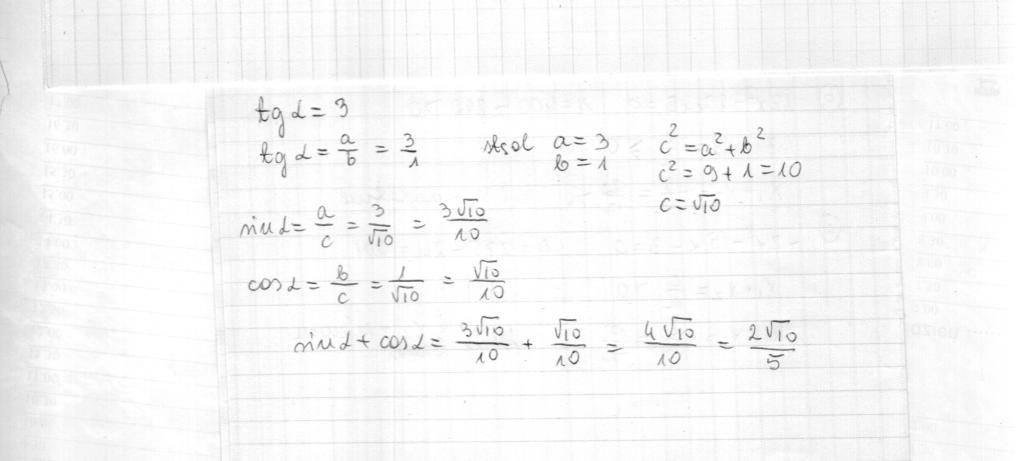 tg α = 3
tg α = a/b = 3/1 stąd a = 3 c² = a² + b²
b = 1 c² = 9 + 1 = 10
c = √10
sin α = a/c = 3/√10 = 3√10/10
cos α = b/c = 1/√10 = √10/10
sin α + cos α = 3√10/10 + √10/10 = 4√10/10 = 2√10/5